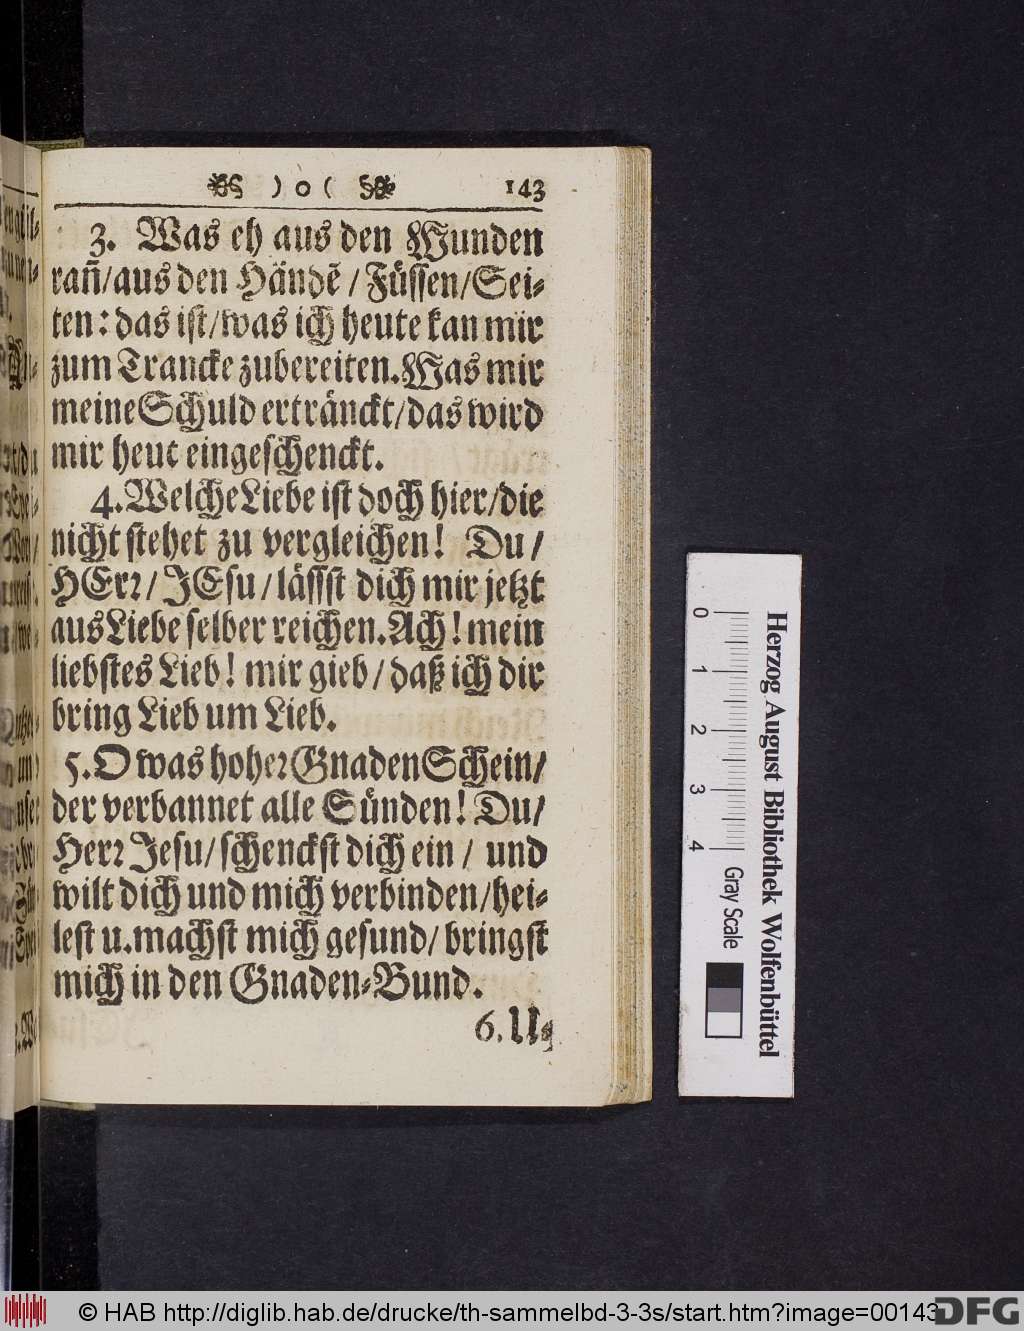 ) o ( 143
3. Was eh aus den Wunden
rañ/aus den Händẽ/Füssen/Sei-
ten: das ist/was ich heute kan mir
zum Trancke zubereiten. Was mir
meine Schuld ertränckt/das wird
mir heut eingeschenckt.
4. Welche Liebe ist doch hier/die
nicht stehet zu vergleichen! Du/
HErr/JEsu/lässst dich mir jetzt
aus Liebe selber reichen. Ach! mein
liebstes Lieb! mir gieb/daß ich dir
bring Lieb um Lieb.
5. O was hoher Gnaden Schein/
der verbannet alle Sünden! Du/
Herr Jesu/schenckst dich ein/und
wilt dich und mich verbinden/hei-
lest u. machst mich gesund/bringst
mich in den Gnaden-Bund.
6. U-
Herzog August Bibliothek Wolfenbüttel
0 1 2 3 4 Gray Scale
© HAB http://diglib.hab.de/drucke/th-sammelbd-3-3s/start.htm?image=00143
DFG